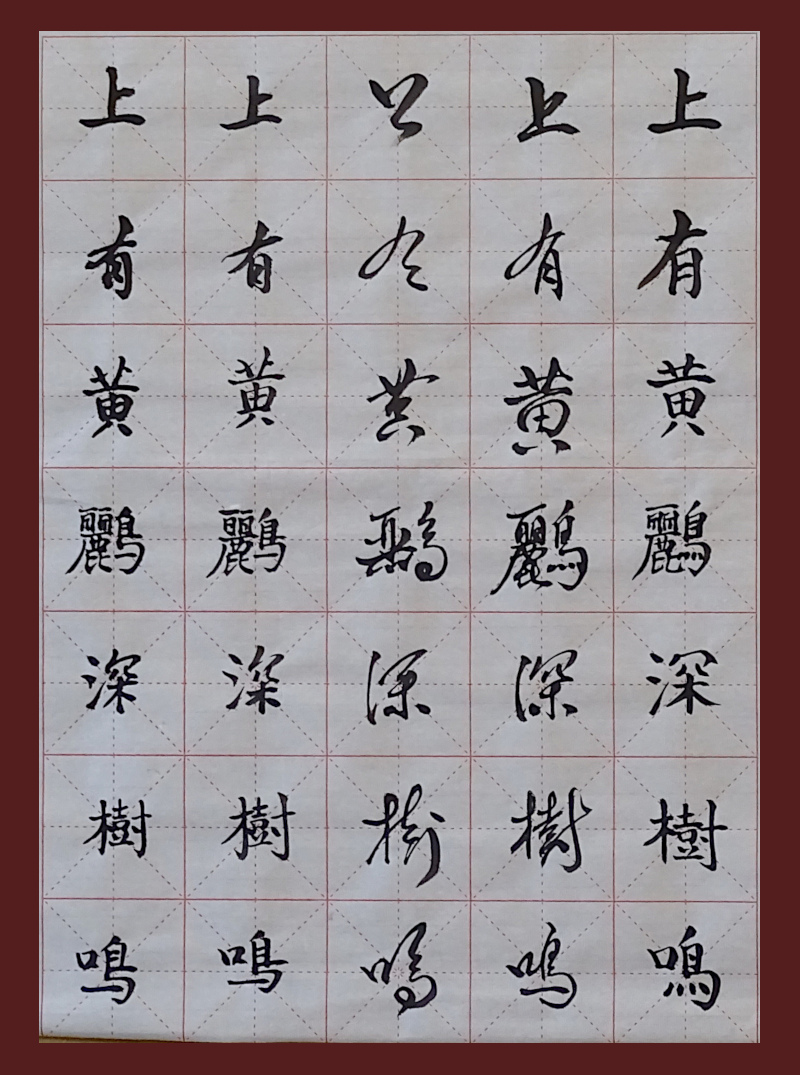 上有黄鸝深樹鳴
上有黄鸝深樹鳴
上有黄鸝深樹鳴
上有黄鸝深樹鳴
上有黄鸝深樹鳴